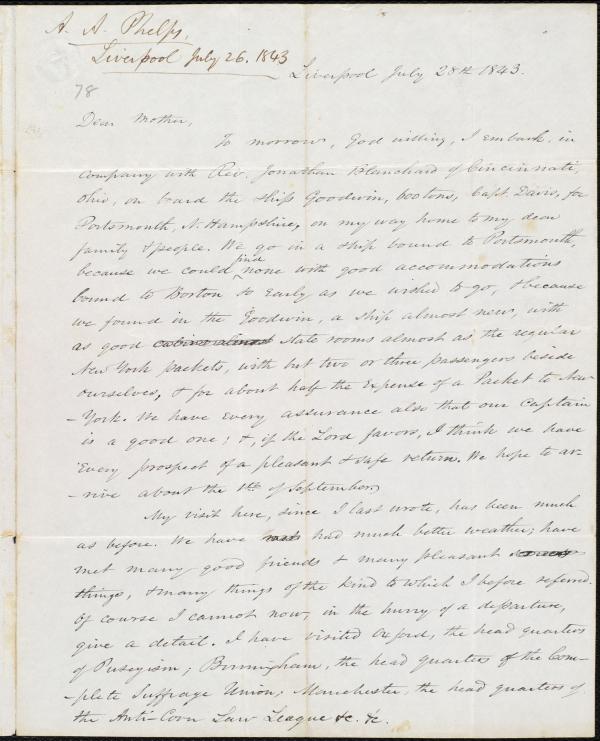 A. A. Phelps,
Liverpool July 26. 1843
Liverpool July 28th 1843.
78
Dear Mother,
To morrow, God willing, I embark, in
company with Rev. Jonathan Blanchard of Cincinnati,
Ohio, on board the ship Goodwin, 600 tons, Capt. Davis, for
Portsmouth, N. Hampshire, on my way home to my dear
family & people. We go in a ship bound to Portsmouth,
because we could find none with good accommodations
bound to Boston so early as we wished to go, & because
we found in the Goodwin, a ship almost new, with
as good cabins almost state rooms almost as the regular
New York packets, with but two or three passengers beside
ourselves, & for about half the expense of a Packet to New-
-York. We have every assurance also that our Captain
is a good one; &, if the Lord favors, I think we have
every prospect of a pleasant & safe return. We hope to ar-
-rive about the 1st of September.
My visit here, since I last wrote, has been much
as before. We have had much better weather; have
met many good friends & many pleasant
things, & many things of the kind to which I before referred.
Of course I cannot now, in the hurry of a departure,
give a detail. I have visited Oxford, the head quarters
of Puseyism; Birmingham, the head quarters of the Com-
-plete Suffrage Union; Manchester, the head quarters of
the Anti-Corn Law League &c. &c.